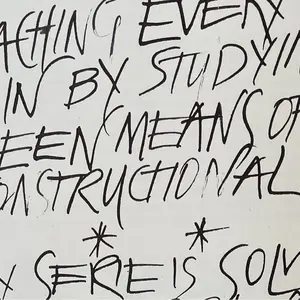 ACHING EVERY
IN BY STUDYIN
EEN MEANS OF
ONSTRUCTIONAL
* *
X SERIE IS SOLV